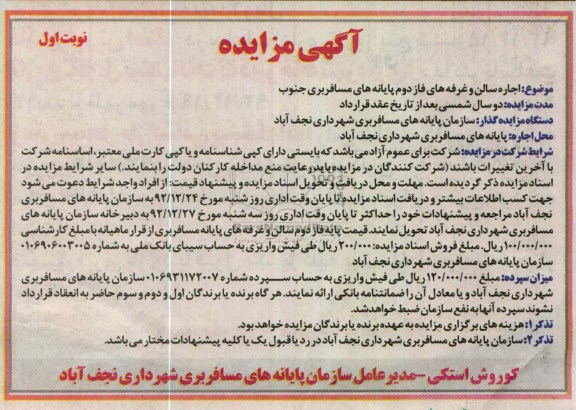 آگهی مزایده
نوبت اول
موضوع: اجاره سالن و غرفه های فاز دوم پایانه های مسافربری جنوب
مدت مزایده: دو سال شمسی بعد از تاریخ عقد قرارداد
دستگاه مزایده گذار: سازمان پایانه های مسافربری شهرداری نجف آباد
محل اجاره: پایانه های مسافربری شهرداری نجف آباد
شرایط شرکت در مزایده: شرکت برای عموم آزاد می باشد که بایستی دارای کپی شناسنامه و یا کپی کارت ملی معتبر، اساسنامه شرکت
با آخرین تغییرات باشند (شرکت کنندگان در مزایده باید رعایت منع مداخله کارکنان دولت را بنمایند.) سایر شرایط مزایده در
اسناد مزایده ذکر گردیده است. مهلت و محل دریافت و تحویل اسناد مزایده و پیشنهاد قیمت: از افراد واجد شرایط دعوت می شود
جهت کسب اطلاعات بیشتر و دریافت اسناد مزایده تا پایان وقت اداری روز شنبه مورخ ۹۲/۱۲/۲۴ به سازمان پایانه های مسافربری
نجف آباد مراجعه و پیشنهادات خود را حداکثر تا پایان وقت اداری روز سه شنبه مورخ ۹۲/۱۲/۲۷ به دبیرخانه سازمان پایانه های
مسافربری شهرداری نجف آباد تحویل نمایند. قیمت پایه فاز دوم سالن و غرفه های پایانه مسافربری از قرار ماهیانه با مبلغ کارشناسی
۱۰۰/۰۰۰/۰۰۰ ریال. مبلغ فروش اسناد مزایده: ۲۰۰/۰۰۰ ریال طی فیش واریزی به حساب سیبای بانک ملی به شماره ۰۱۰۶۹۰۶۰۰۳۰۰۵
سازمان پایانه های مسافربری شهرداری نجف آباد
میزان سپرده: مبلغ ۱۲۰/۰۰۰/۰۰۰ ریال طی فیش واریزی به حساب سپرده شماره ۰۱۰۶۹۳۱۱۷۲۰۰۷ سازمان پایانه های مسافربری
شهرداری نجف آباد و یا معادل آن را ضمانتنامه بانکی ارائه نمایند. هر گاه برنده یا برندگان اول و دوم و سوم حاضر به انعقاد قرارداد
نشوند سپرده آنها به نفع سازمان ضبط خواهد شد.
تذکر۱: هزینه های برگزاری مزایده به عهده برنده یا برندگان مزایده خواهد بود.
تذکر۲: سازمان پایانه های مسافربری شهرداری نجف آباد در رد یا قبول یک یا کلیه پیشنهادات مختار می باشد.
کوروش استکی -مدیر عامل سازمان پایانه های مسافربری شهرداری نجف آباد